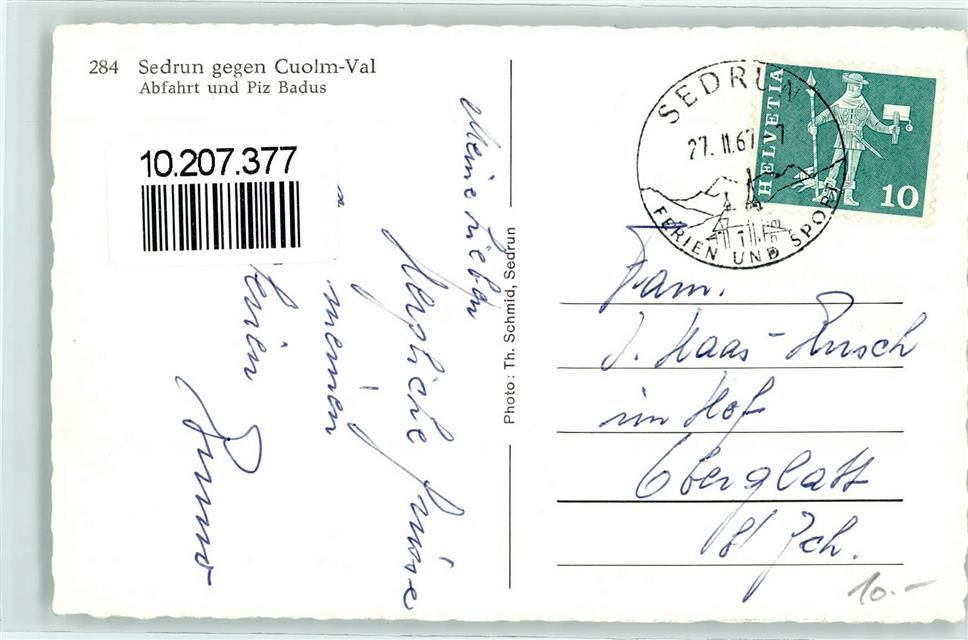 284 Sedrun gegen Cuolm-Val
Abfahrt und Piz Badus
10.207.377
Meine Lieben
Herzliche Grüsse
meinen
Ferien
Bruno
Photo: Th. Schmid, Sedrun
SEDRUN
27. II. 67 - 7
FERIEN UND SPORT
HELVETIA
10
Fam.
J. Haas-Rusch
im Hof
Oberglatt
Zch.
10.-